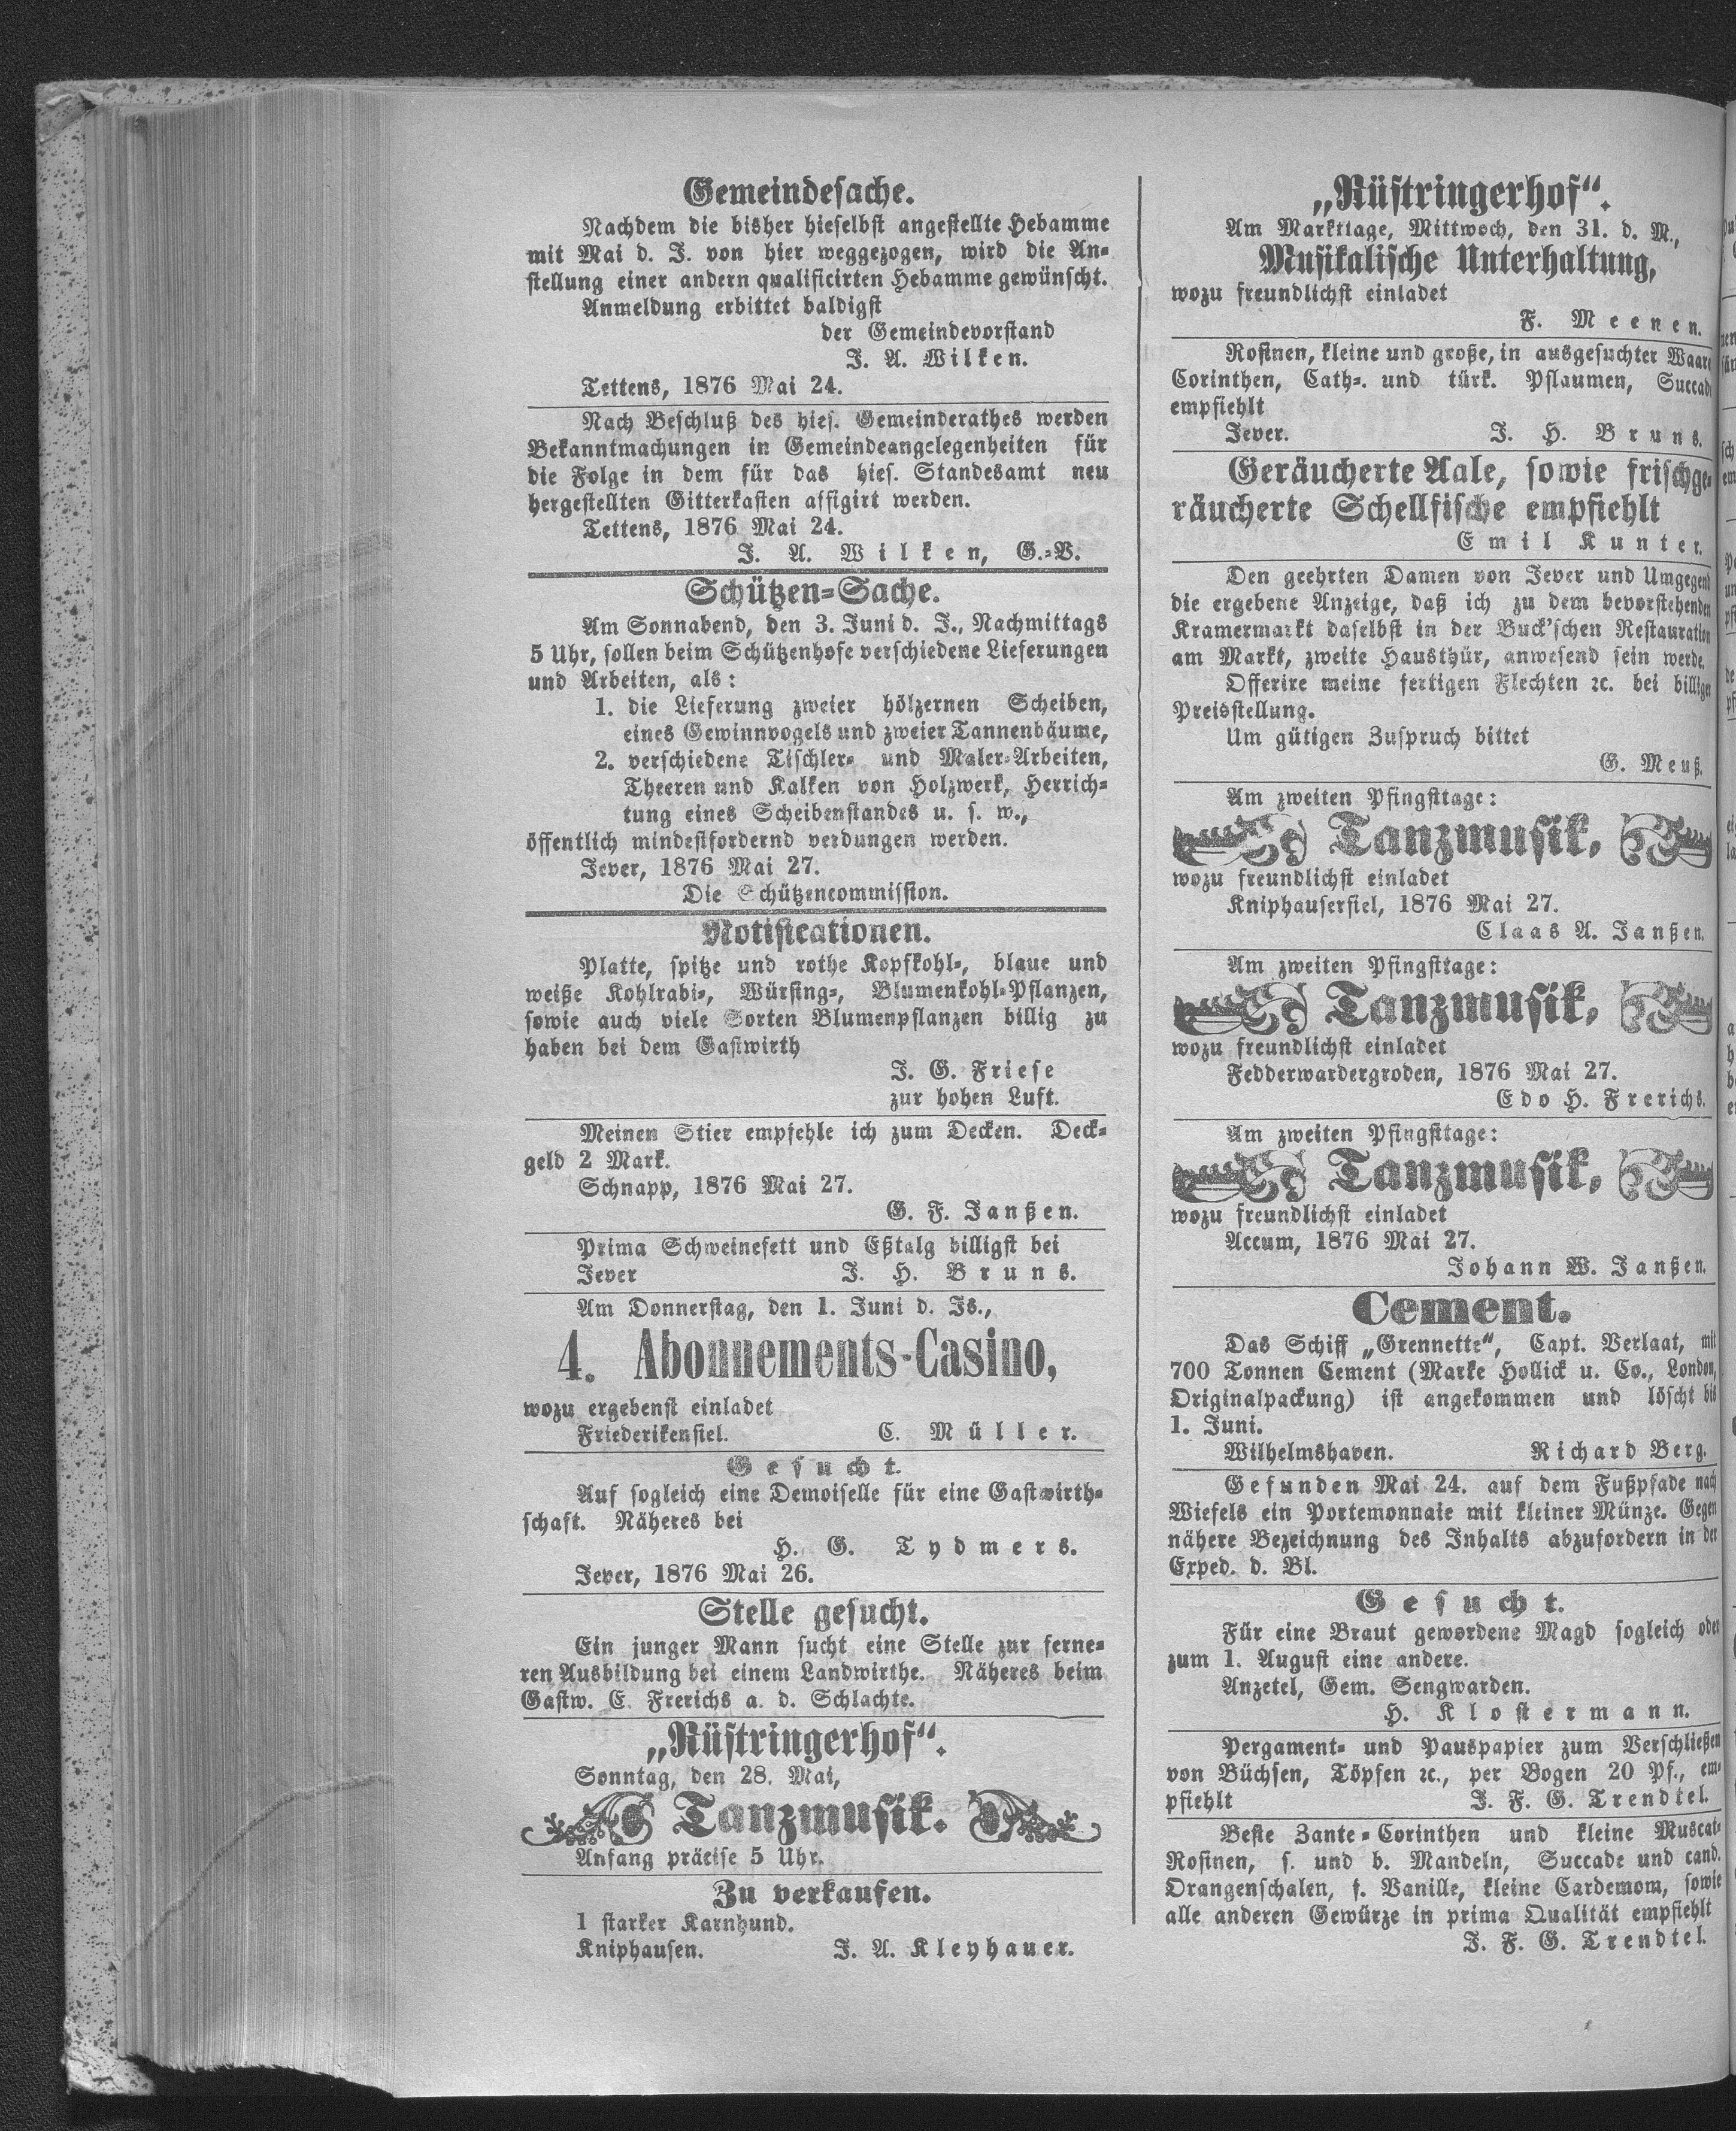 Gemeindesache.
Nachdem die bisher hieselbst angestellte Hebamme
mit Mai d. J. von hier weggezogen, wird die An-
stellung einer andern qualificirten Hebamme gewünscht.
Anmeldung erbittet baldigst
der Gemeindevorstand
J. A. Wilken.
Tettens, 1876 Mai 24.
Nach Beschluß des hies. Gemeinderathes werden
Bekanntmachungen in Gemeindeangelegenheiten für
die Folge in dem für das hies. Standesamt neu
hergestellten Gitterkasten affigirt werden.
Tettens, 1876 Mai 24.
J. A. Wilken, G.-V.
Schützen-Sache.
Am Sonnabend, den 3. Juni d. J., Nachmittags
5 Uhr, sollen beim Schützenhofe verschiedene Lieferungen
und Arbeiten, als:
1. die Lieferung zweier hölzernen Scheiben,
eines Gewinnvogels und zweier Tannenbäume,
2. verschiedene Tischler- und Maler-Arbeiten,
Theeren und Kalken von Holzwerk, Herrich-
tung eines Scheibenstandes u. s. w.,
öffentlich mindestfordernd verdungen werden.
Jever, 1876 Mai 27.
Die Schützencommission.
Notificationen.
Platte, spitze und rothe Kopfkohl-, blaue und
weiße Kohlrabi-, Würsing-, Blumenkohl-Pflanzen,
sowie auch viele Sorten Blumenpflanzen billig zu
haben bei dem Gastwirth
J. G. Friese
zur hohen Luft.
Meinen Stier empfehle ich zum Decken. Deck-
geld 2 Mark.
Schnapp, 1876 Mai 27.
G. F. Janßen.
Prima Schweinefett und Eßtalg billigst bei
Jever J. H. Bruns.
Am Donnerstag, den 1. Juni d. Js.,
4. Abonnements-Casino,
wozu ergebenst einladet
Friederikensiel. C. Müller.
Gesucht.
Auf sogleich eine Demoiselle für eine Gastwirth-
schaft. Näheres bei
H. G. Tydmers.
Jever, 1876 Mai 26.
Stelle gesucht.
Ein junger Mann sucht eine Stelle zur ferne-
ren Ausbildung bei einem Landwirthe. Näheres beim
Gastw. E. Frerichs a. d. Schlachte.
„Rüstringerhof“.
Sonntag, den 28. Mai,
Tanzmusik.
Anfang präcise 5 Uhr.
Zu verkaufen.
1 starker Karnhund.
Kniphausen. J. A. Kleyhauer.
„Rüstringerhof“.
Am Markttage, Mittwoch, den 31. d. M.,
Musikalische Unterhaltung,
wozu freundlichst einladet
F. Meenen.
Rosinen, kleine und große, in ausgesuchter Waare
Corinthen, Cath-. und türk. Pflaumen, Succade
empfiehlt
Jever. J. H. Bruns.
Geräucherte Aale, sowie frischge-
räucherte Schellfische empfiehlt
Emil Kunter.
Den geehrten Damen von Jever und Umgegend
die ergebene Anzeige, daß ich zu dem bevorstehenden
Kramermarkt daselbst in der Buck'schen Restauration
am Markt, zweite Hausthür, anwesend sein werde.
Offerire meine fertigen Flechten ꝛc. bei billiger
Preisstellung.
Um gütigen Zuspruch bittet
G. Meuß.
Am zweiten Pfingsttage:
Tanzmusik,
wozu freundlichst einladet
Kniphausersiel, 1876 Mai 27.
Claas A. Janßen.
Am zweiten Pfingsttage:
Tanzmusik,
wozu freundlichst einladet
Fedderwardergroden, 1876 Mai 27.
Edo H. Frerichs.
Am zweiten Pfingsttage:
Tanzmusik,
wozu freundlichst einladet
Accum, 1876 Mai 27.
Johann W. Janßen.
Cement.
Das Schiff „Grennette“, Capt. Verlaat, mit
700 Tonnen Cement (Marke Hollick u. Co., London,
Originalpackung) ist angekommen und löscht bis
1. Juni.
Wilhelmshaven. Richard Berg.
Gefunden Mai 24. auf dem Fußpfade nach
Wiefels ein Portemonnaie mit kleiner Münze. Gegen
nähere Bezeichnung des Inhalts abzufordern in der
Exped. d. Bl.
Gesucht.
Für eine Braut gewordene Magd sogleich oder
zum 1. August eine andere.
Anzetel, Gem. Sengwarden.
H. Klostermann.
Pergament- und Pauspapier zum Verschließen
von Büchsen, Töpfen ꝛc., per Bogen 20 Pf., em-
pfiehlt J. F. G. Trendtel.
Beste Zante-Corinthen und kleine Muscat-
Rosinen, s. und b. Mandeln, Succade und cand.
Orangenschalen, f. Vanille, kleine Cardemom, sowie
alle anderen Gewürze in prima Qualität empfiehlt
J. F. G. Trendtel.